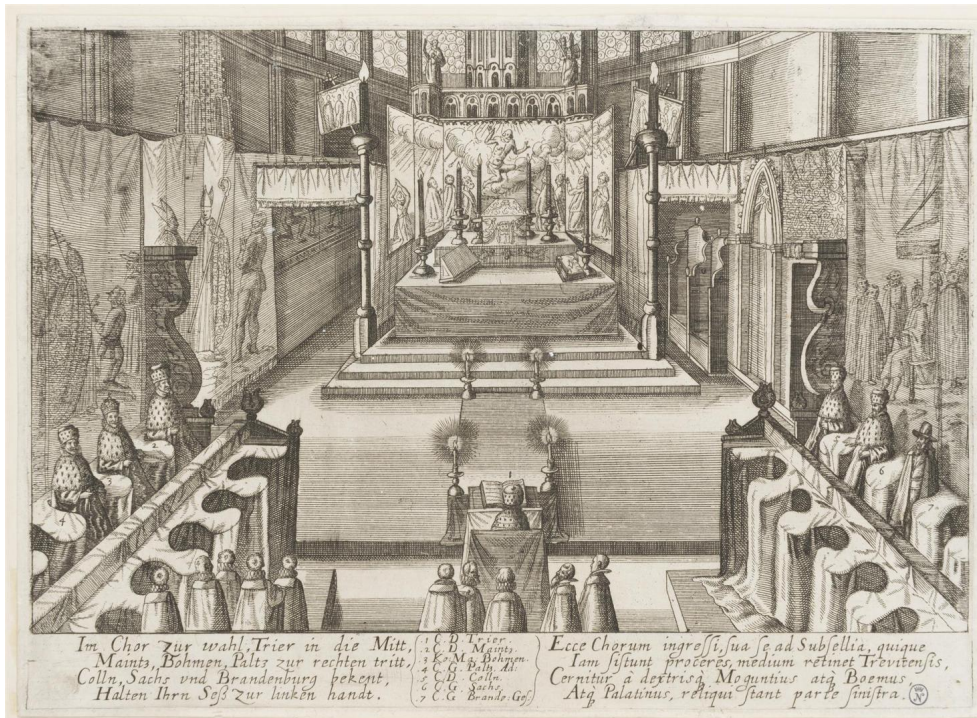 Im Chor zur wahl, Trier in die Mitt,
Maintz, Böhmen, Paltz zur rechten tritt,
Colln, Sachs vnd Brandenburg bekent,
Halten Ihrn Seß zur linken handt.
1 C. D. Trier.
2 C. D. Maintz.
3 Ko: Ma: Böhmen.
4 C. G. Paltz. Ad.
5 C. D. Cölln.
6 C. G. Sachs.
7 C. G. Brande: Ges.
Ecce Chorum ingreſsi, sua se ad Subſellia, quique
Iam siſtunt proceres, medium retinet Trevirensis,
Cernitur à dextrisq, Moguntius atq, Boemus,
Atq, Palatinus, reliqui stant parte siniſtra.
1
2
3
4
6
7